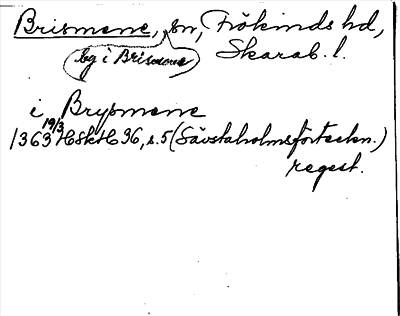 Brismene, sn, Frökinds hd,
by i Brismene
Skarab. l.
i Brysmene
1363 19/3 HSkH 36, s. 5 (Sävstaholmsförteckn.)
regest.